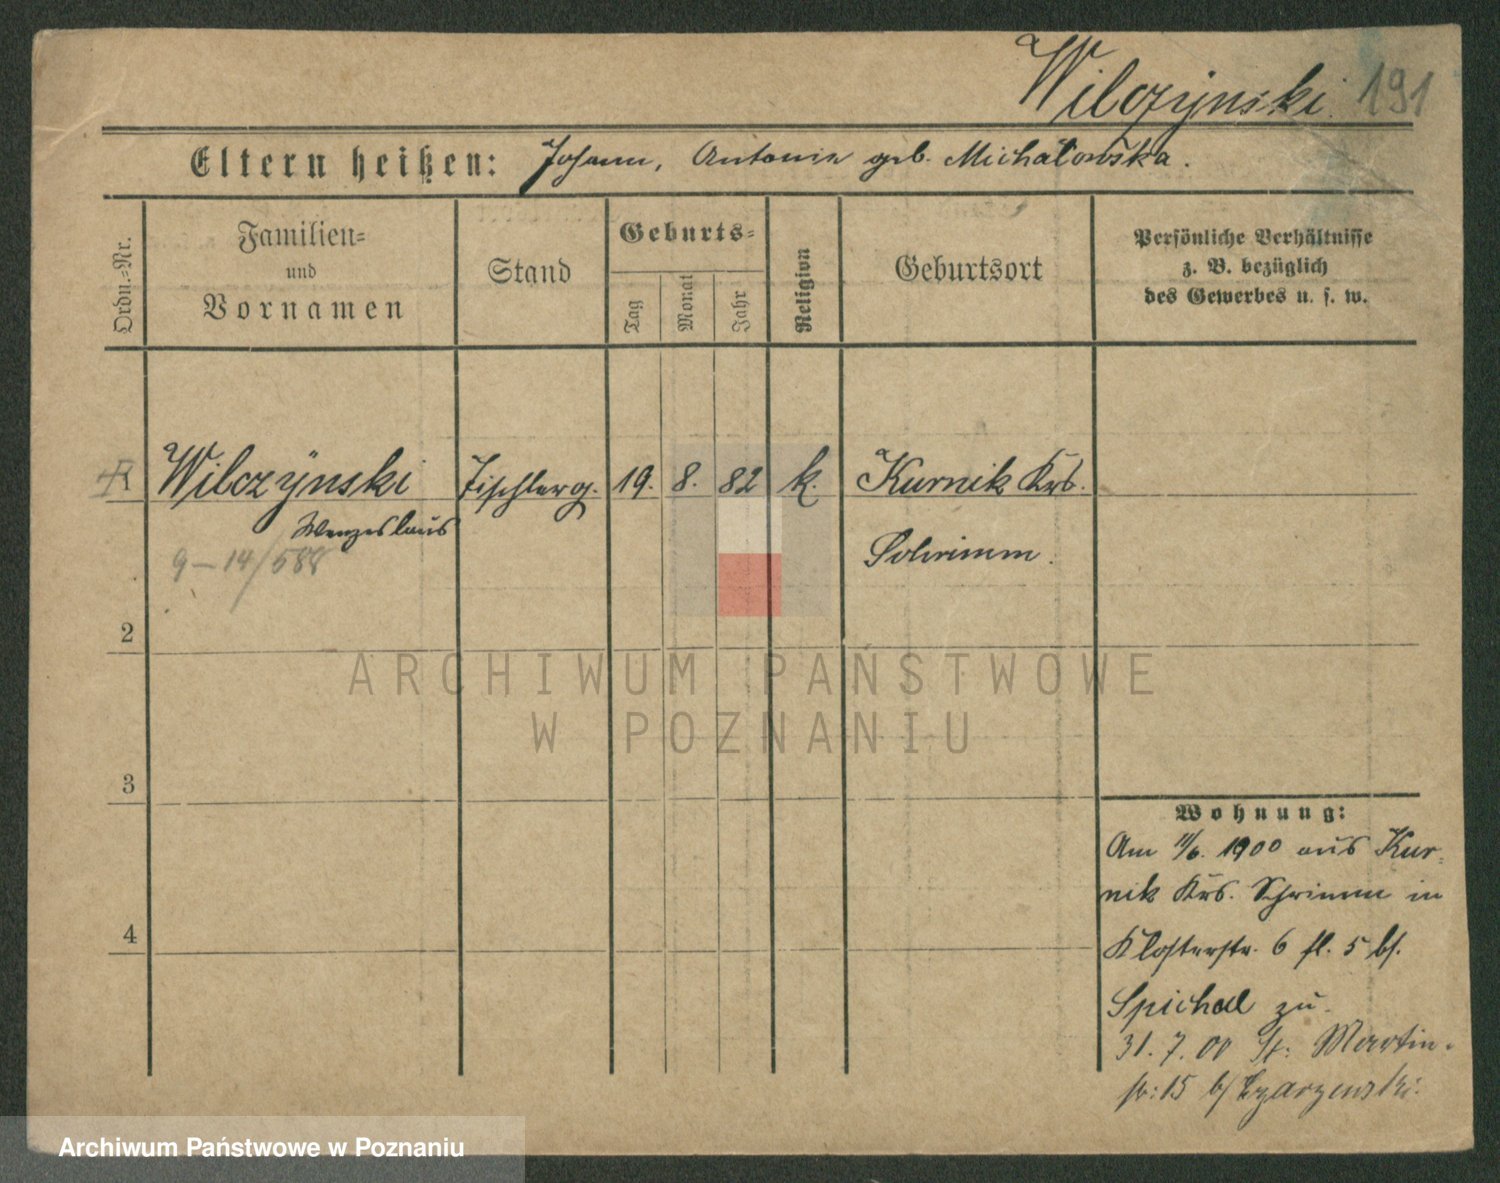 Wilczynski. 191
Eltern heißen: Johann, Antonie geb. Michałowska.
Ordn.-Nr.
Familien-
und
Vornamen
Stand
Geburts-
Tag
Monat
Jahr
Religion
Geburtsort
Persönliche Verhältnisse
z. B. bezüglich
des Gewerbes u. s. w.
1 Wilczynski Tischlerg. 19. 8. 82 k. Kurnik Krs.
Wenzeslaus
Schrimm.
9-14/588
2
3
4
Wohnung:
Am 11/6. 1900 aus Kur-
nik Krs. Schrimm in
Klosterstr. 6 fl. 5 bf.
Spichal zu.
31. 7. 00 St. Martin-
str. 15 b/
ARCHIWUM PAŃSTWOWE
W POZNANIU
Archiwum Państwowe w Poznaniu